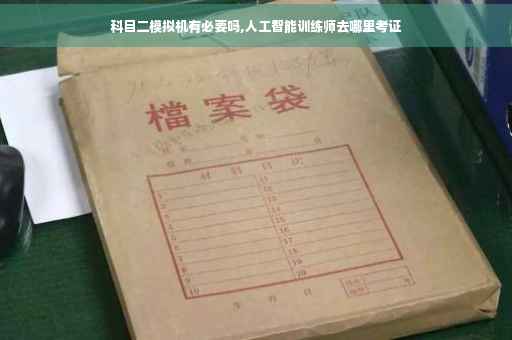 科目二模拟机有必要吗,人工智能训练师去哪里考证
檔案袋
材料目次
1 11
2 12
3 13
4 14
5 15
6 16
7 17
8 18
9 19
10 20
年 月 日